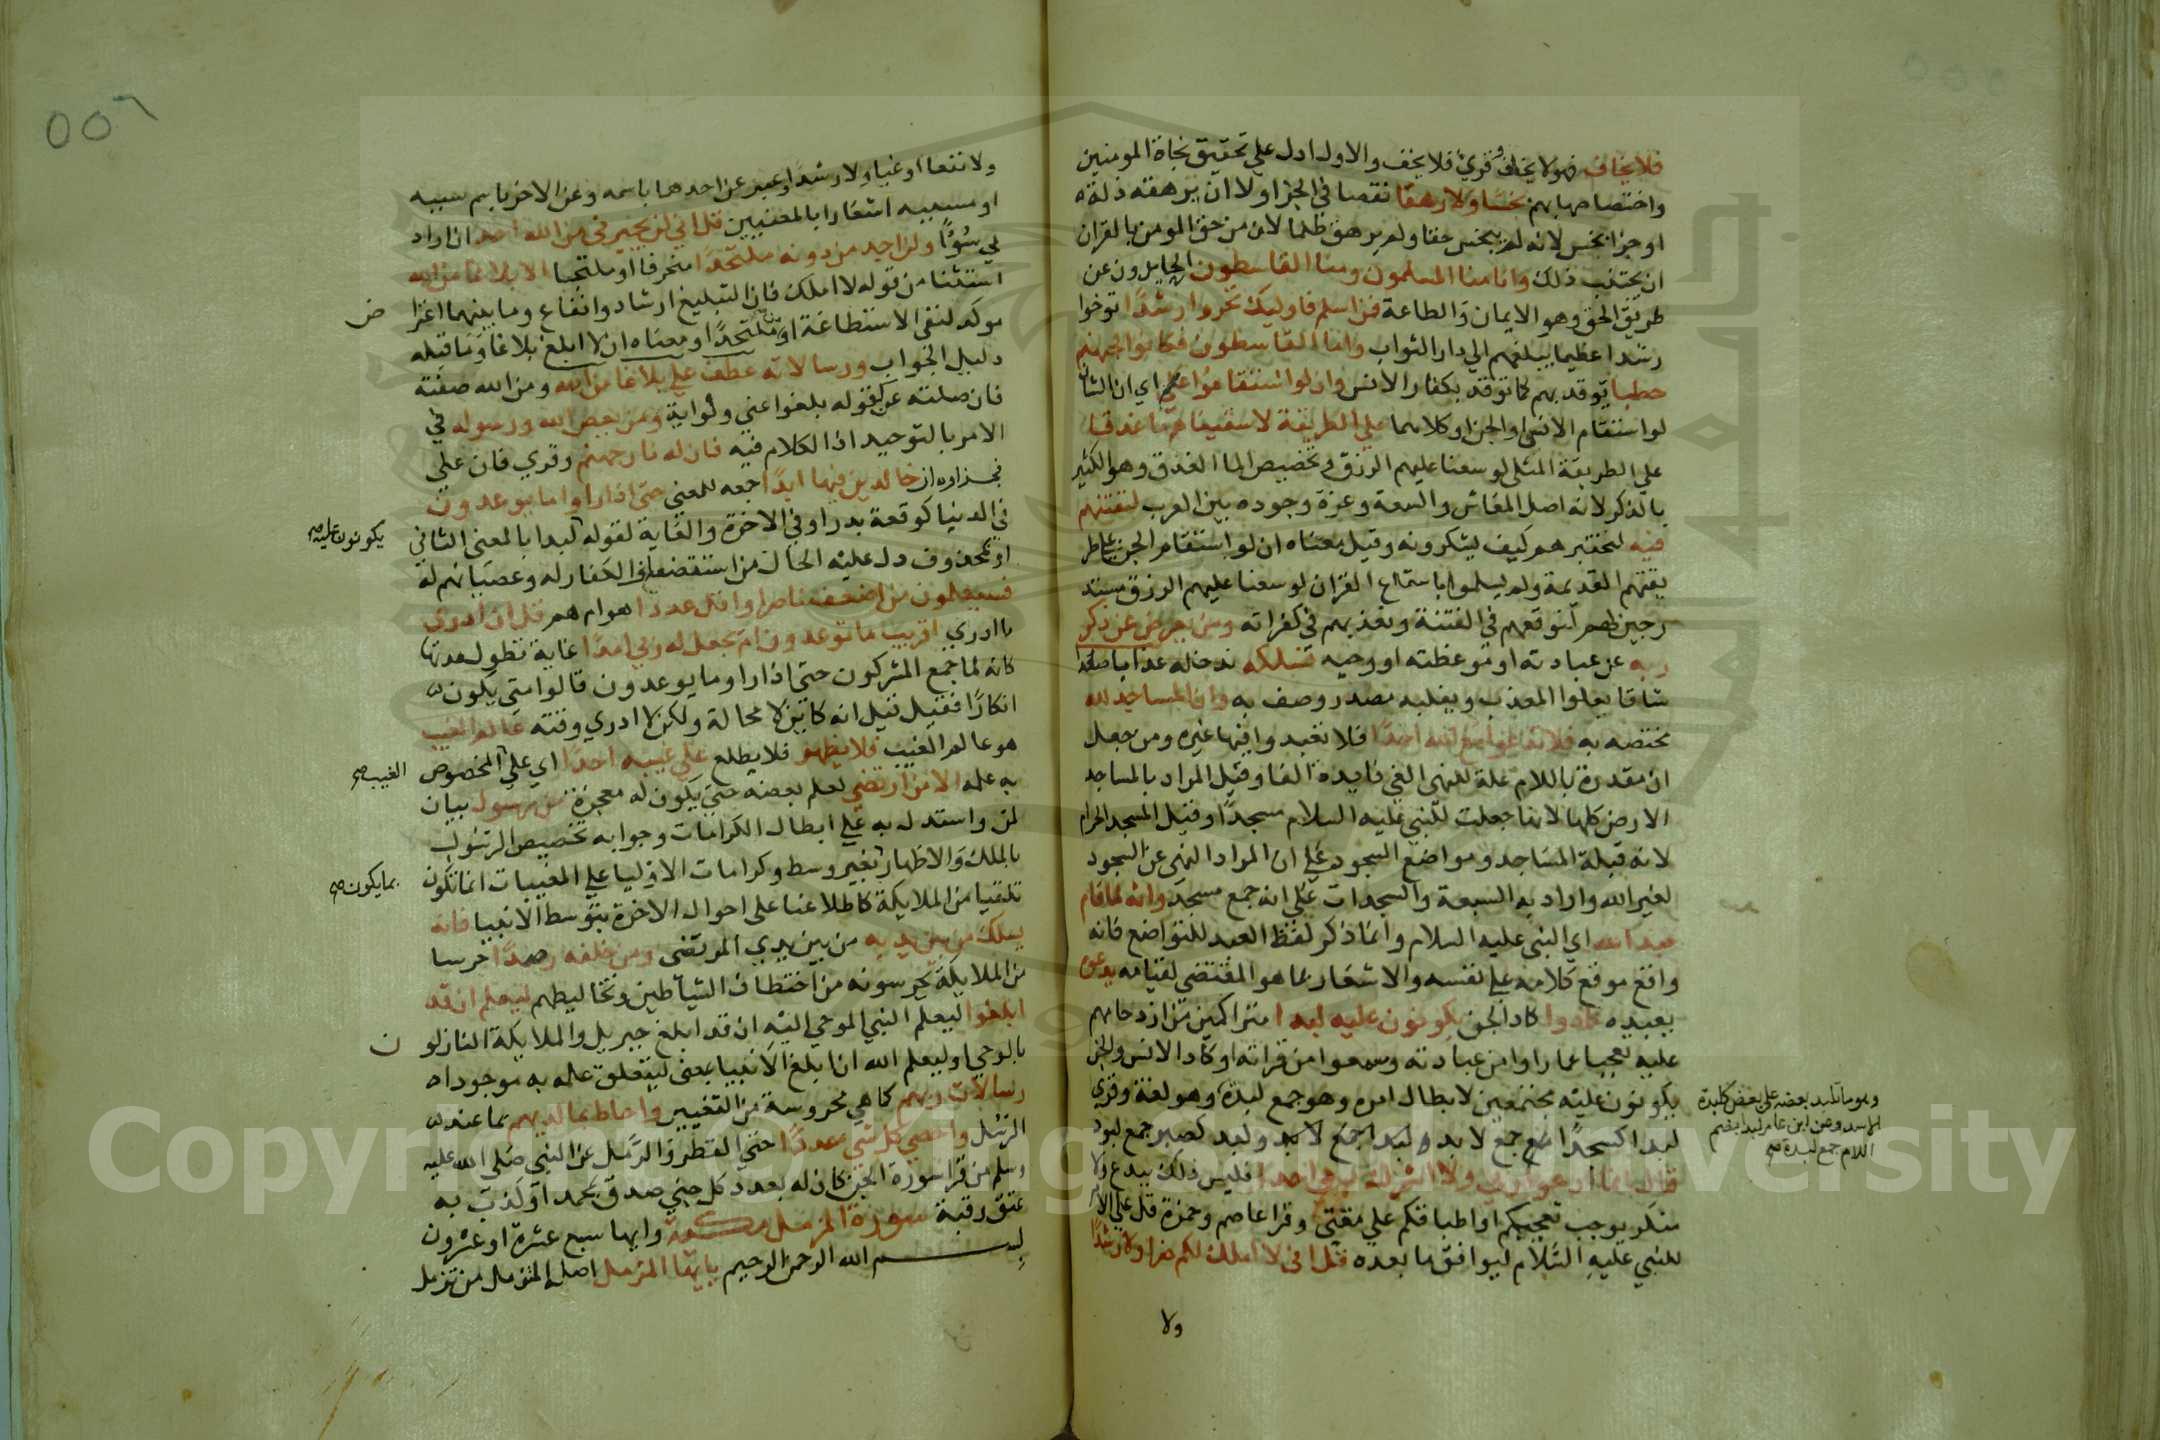 فلا يخاف فهو لا يخاف وقرئ فلا يخف والاول ادل علي تحقيق نجاة المومنين
واختصاصها بهم بخسا ولا رهقا نقصا في الجزا ولا ان يرهقه ذلة
او جزا بخس لانه لم يبخس حقا ولم يرهق ظلما لان من حق المومن بالقران
ان يجتنب ذلك وانا منا المسلمون ومنا القاسطون الجايرون عن
طريق الحق وهو الايمان والطاعة فمن اسلم فاوليك تحروا رشدا توخوا
رشدا عظيما يبلغهم الي دار الثواب واما القاسطون فكانوا لجهنم
حطبا توقد بهم كما توقد بكفار الانس وان لو استقاموا علي اي ان الشان
لو استقام الانس او الجن او كلاهما علي الطريقة لاسقيناهم ما غدقا
علي الطريقة المثلي لوسعنا عليهم الرزق وتخصيص الما الغدق وهو الكثير
بالذكر لانه اصل المعاش والسعة وعزة وجوده بين العرب لنفتنهم
فيه لنختبرهم كيف يشكرونه وقيل معناه ان لو استقام الجن علي طر
يقتهم القديمة ولم يسلموا باستماع القران لوسعنا عليهم الرزق مستد
رجين لهم لنوقعهم في الفتنة ونعذبهم في كفرانه ومن يعرض عن ذكر
ربه عن عبادته او موعظته او وحيه نسلكه ندخله عذابا صعدا
شاقا يعلوا المعذب ويغلبه مصدر وصف به وان المساجد لله
مختصه به فلا تدعوا مع الله احدا فلا تعبدوا فيها غيره ومن جعل
ان مقدرة باللام علة للنهي الغي فايدة الفا وقيل المراد بالمساجد
الارض كلها لانها جعلت للنبي عليه السلام مسجدا وقيل المسجد الحرام
لانه قبلة المساجد ومواضع السجود علي ان المراد النهي عن السجود
لغير الله واراد به السبعة والسجدات علي انه جمع مسجد وانه لما قام
عبد الله اي النبي عليه السلام وانما ذكر لفظ العبد للتواضع فانه
واقع موقع كلامه علي نفسه والاشعار بما هو المقتضي لقيامه يدعوه
يعبده كادوا كاد الجن يكونون عليه لبدا متراكمين من ازدحامهم
عليه تعجبا مما راوا من عبادته وسمعوا من قراته او كاد الانس والجن
يكونون عليه مجتمعين لابطال امره وهو جمع لبدة وهو لغة وقري
لبدا كسجدا جمع لابد ولبدا كصبر جمع لبود
قال انما ادعو ربي ولا اشرك به احدا فليس ذلك ببدع ولا
منكر يوجب تعجبكم او اطباقكم علي مقتي وقرا عاصم وحمزة قل علي الامر
للنبي عليه السلام ليوافق ما بعده قل اني لا املك لكم ضرا ولا رشدا
ولا
وهو ما تلبد بعضه علي بعض كلبدة
الاسد وعن ابن عامر لبدا بضم
اللام جمع لبدة صح
٥٥٦
ولا نفعا او غيا ولا رشدا وعبر عن احدهما باسمه وعن الاخر باسم سببه
او مسببه اشعارا بالمعنيين قل اني لن يجيرني من الله احد ان اراد
بي سوًا ولن اجد من دونه ملتحدا منحرفا او ملتجيا الا بلاغا من الله
استثنا من قوله لا املك فان التبليغ ارشاد وانفاع وما بينهما اعترا
ض
موكد لنفي الاستطاعة او من ملتحدا او معناه ان لا ابلغ بلاغا وما قبله
دليل الجواب ورسالاته عطف علي بلاغا من الله ومن الله صفته
فان صلته عن كقوله بلغوا عني ولو اية ومن يعص الله ورسوله في
الامر بالتوحيد اذ الكلام فيه فان له نار جهنم وقري فان علي
فجزاوه ان خالدين فيها ابدا جمعه للمعني حتي اذا راوا ما يوعدون
في الدنيا كوقعة بدر او في الاخرة والغاية لقوله يكونون عليه لبدا بالمعني الثاني
يكونون عليه صح
او لمحذوف دل عليه الحال من استضعاف الكفار له وعصيانهم له
فسيعلمون من اضعف ناصرا واقل عددا هو ام هم قل ان ادري
ما ادري اقريب ما توعدون ام يجعل له ربي امدا غاية تطول مدتها
كانه لما سمع المشركون حتي اذا راوا ما يوعدون قالوا متي يكون
انكارا فقيل قل انه كاين لا محالة ولكن لا ادري وقته عالم الغيب
هو عالم الغيب فلا يظهر فلا يطلع علي غيبه احدا اي علي المخصوص
الغيب صح
به علمه الا من ارتضي لعلم بعضه حتي يكون له معجزة من رسول بيان
لمن واستدل به علي ابطال الكرامات وجوابه تخصيص الرسول
بالملك والاظهار بغير وسط وكرامات الاوليا علي المغيبات انما تكون
بما يكون صح
تلقيا من الملايكة كاطلاعنا علي احوال الاخرة بتوسط الانبيا فانه
يسلك من بين يديه من بين يدي المرتضي ومن خلفه رصدا حرسا
من الملايكة يحرسونه من اختطاف الشياطين وتخاليطهم ليعلم ان قد
ابلغوا ليعلم النبي الموحي اليه ان قد ابلغ جبريل والملايكة النازلو
ن
بالوحي او ليعلم الله ان ابلغ الانبيا بمعني ليتعلق علمه به موجودا
رسالات ربهم كما هي محروسة من التغيير واحاط بما لديهم بما عند
الرسل واحصي كل شي عددا حتي القطر والرمل عن النبي صلي الله عليه
وسلم من قرا سورة الجن كان له بعدد كل جني صدق بمحمد او كذب به
عتق رقبة سورة المزمل مكية وايها سبع عشرة او عشرون
بسم الله الرحمن الرحيم يايها المزمل اصله المتزمل من تزمل
Copyright © King Saud University